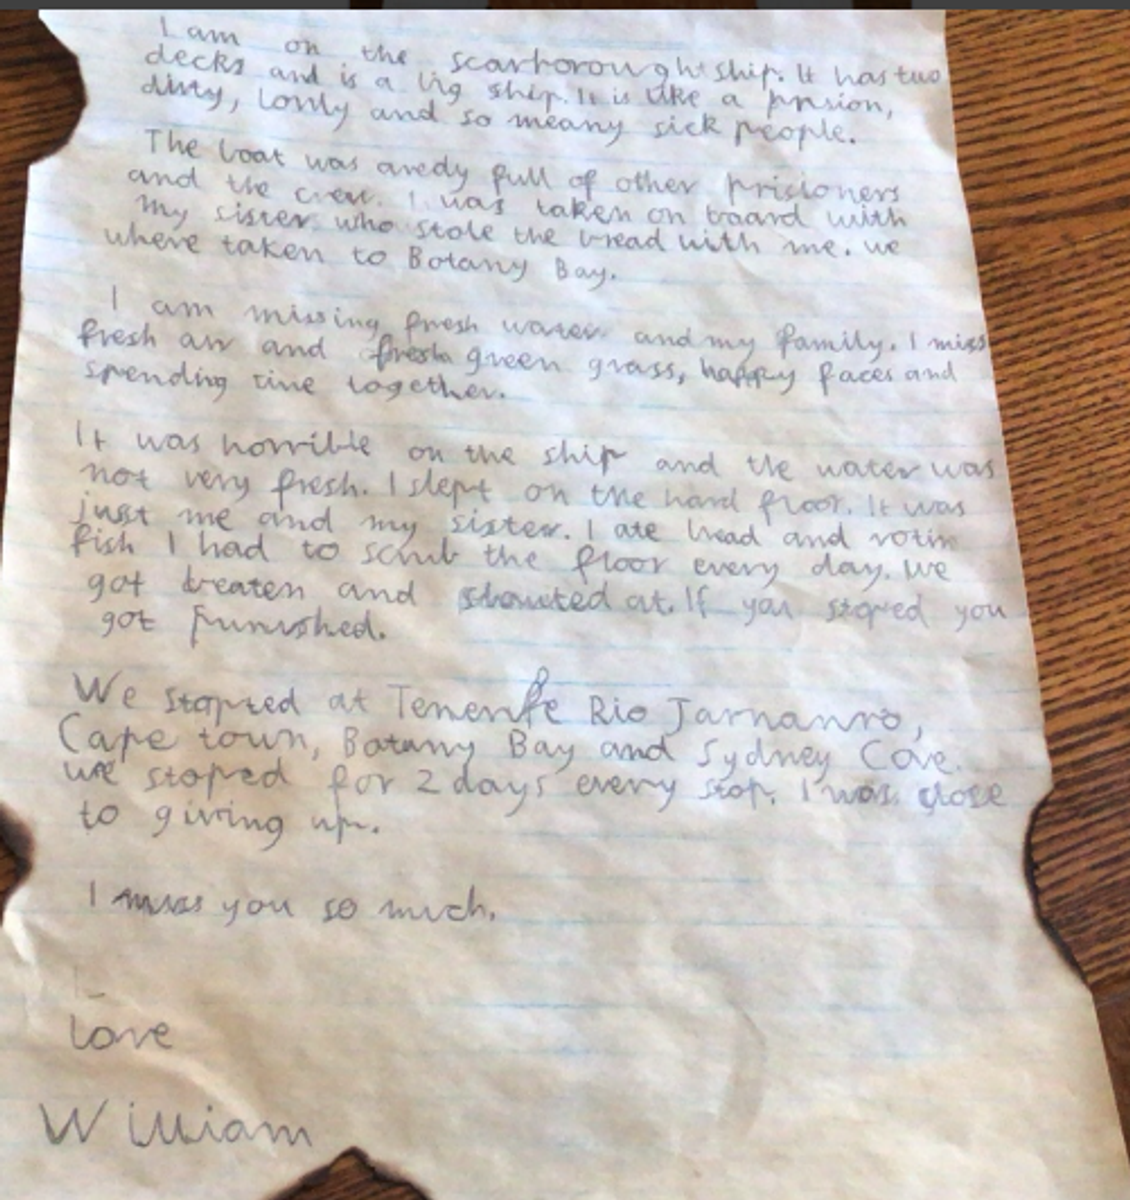 I am on the scarborough ship. It has two
decks and is a big ship. It is like a prison,
dirty, lonly and so meany sick people.
The boat was aredy full of other prisioners
and the crew. I was taken on board with
my sister who stole the bread with me. we
where taken to Botany Bay.
I am missing fresh water and my family. I miss
fresh air and fresh green grass, happy faces and
spending time together.
It was horrible on the ship and the water was
not very fresh. I slept on the hard floor. It was
just me and my sister. I ate bread and rotin
fish I had to scrub the floor every day. We
got beaten and shouted at. If you stoped you
got punished.
We stopped at Tenerife Rio Jarnanro,
Cape town, Botany Bay and Sydney Cove.
we stoped for 2 days every stop. I was close
to giving up.
I miss you so much.
Love
William